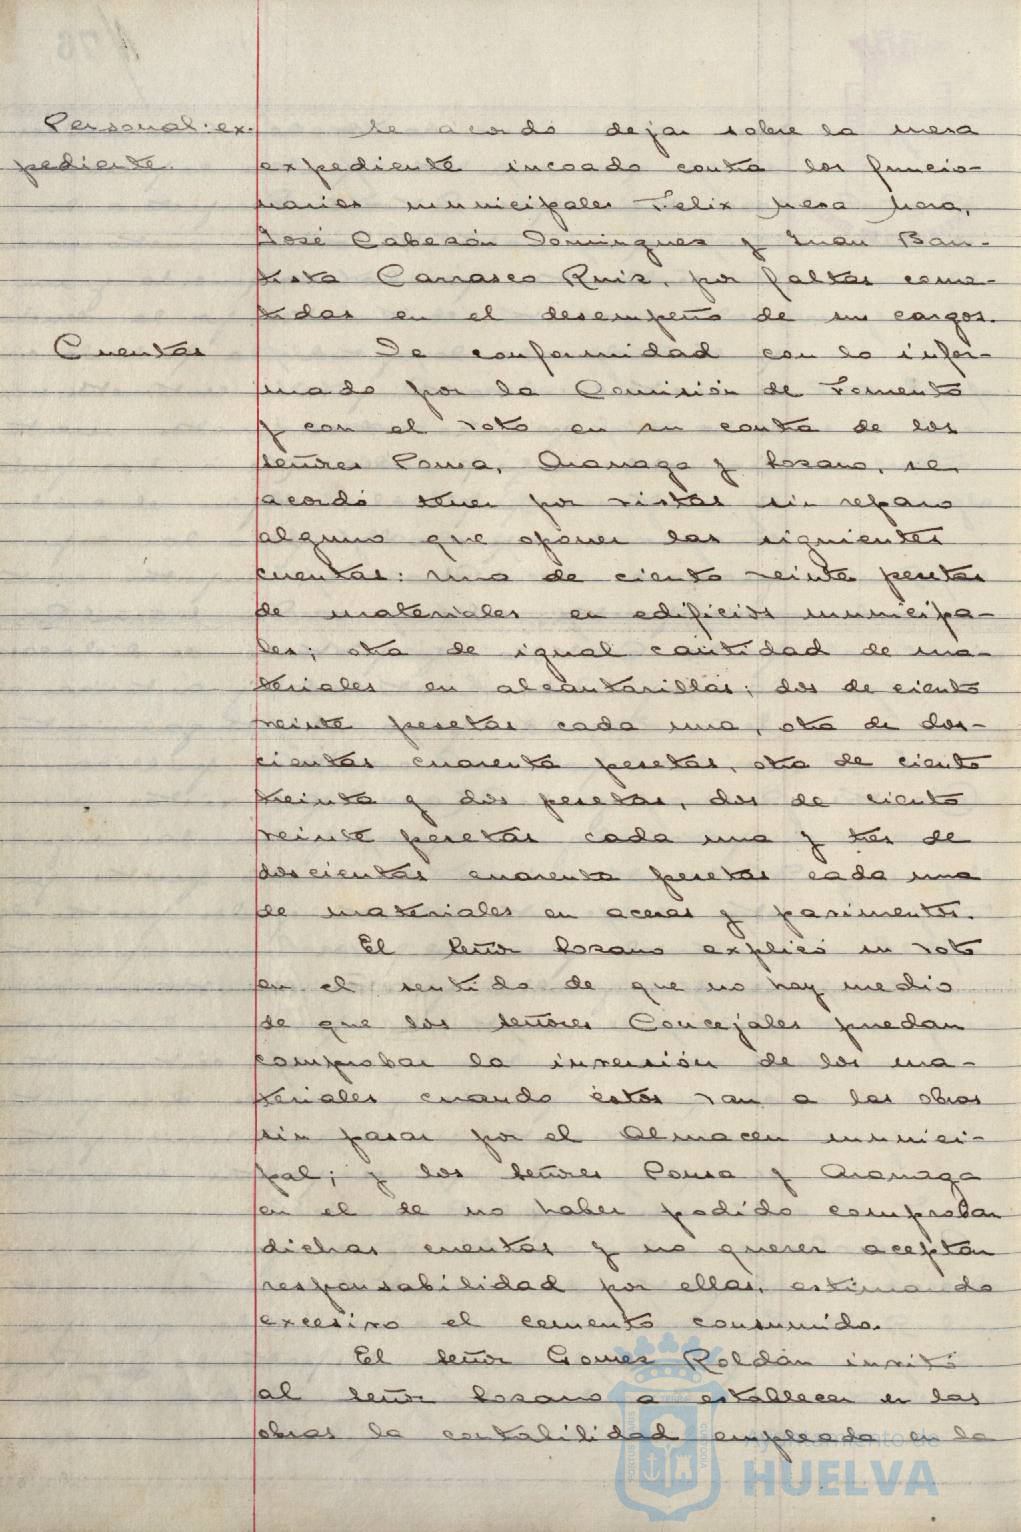 Personal: ex-
pediente.
Se acordó dejar sobre la mesa
expediente incoado contra los funcio-
narios municipales Felix Mesa Mora,
José Cabezón Domínguez y Juan Bau-
tista Carrasco Ruiz, por faltas come-
tidas en el desempeño de sus cargos.
Cuentas
De conformidad con lo infor-
mado por la Comisión de Fomento
y con el voto en su contra de los
Señores Pousa, Aranaga y Lozano, se
acordó tener por vistas sin reparo
alguno que oponer las siguientes
cuentas: una de ciento veinte pesetas
de materiales en edificios municipa-
les; otra de igual cantidad de ma-
teriales en alcantarillas; dos de ciento
veinte pesetas cada una, otra de dos-
cientas cuarenta pesetas, otra de ciento
treinta y dos pesetas, dos de ciento
veinte pesetas cada una y tres de
doscientas cuarenta pesetas cada una
de materiales en aceras y pavimentos.
El Señor Lozano explicó su voto
en el sentido de que no hay medio
de que los Señores Concejales puedan
comprobar la inversión de los ma-
teriales cuando éstos van a las obras
sin pasar por el Almacen munici-
pal; y los Señores Pousa y Aranaga
en el de no haber podido comprobar
dichas cuentas y no querer aceptar
responsabilidad por ellas, estimando
excesivo el cemento consumido.
El Señor Gomez Roldán invitó
al Señor Lozano a establecer en las
obras la contabilidad empleada en la
Ayuntamiento de
HUELVA